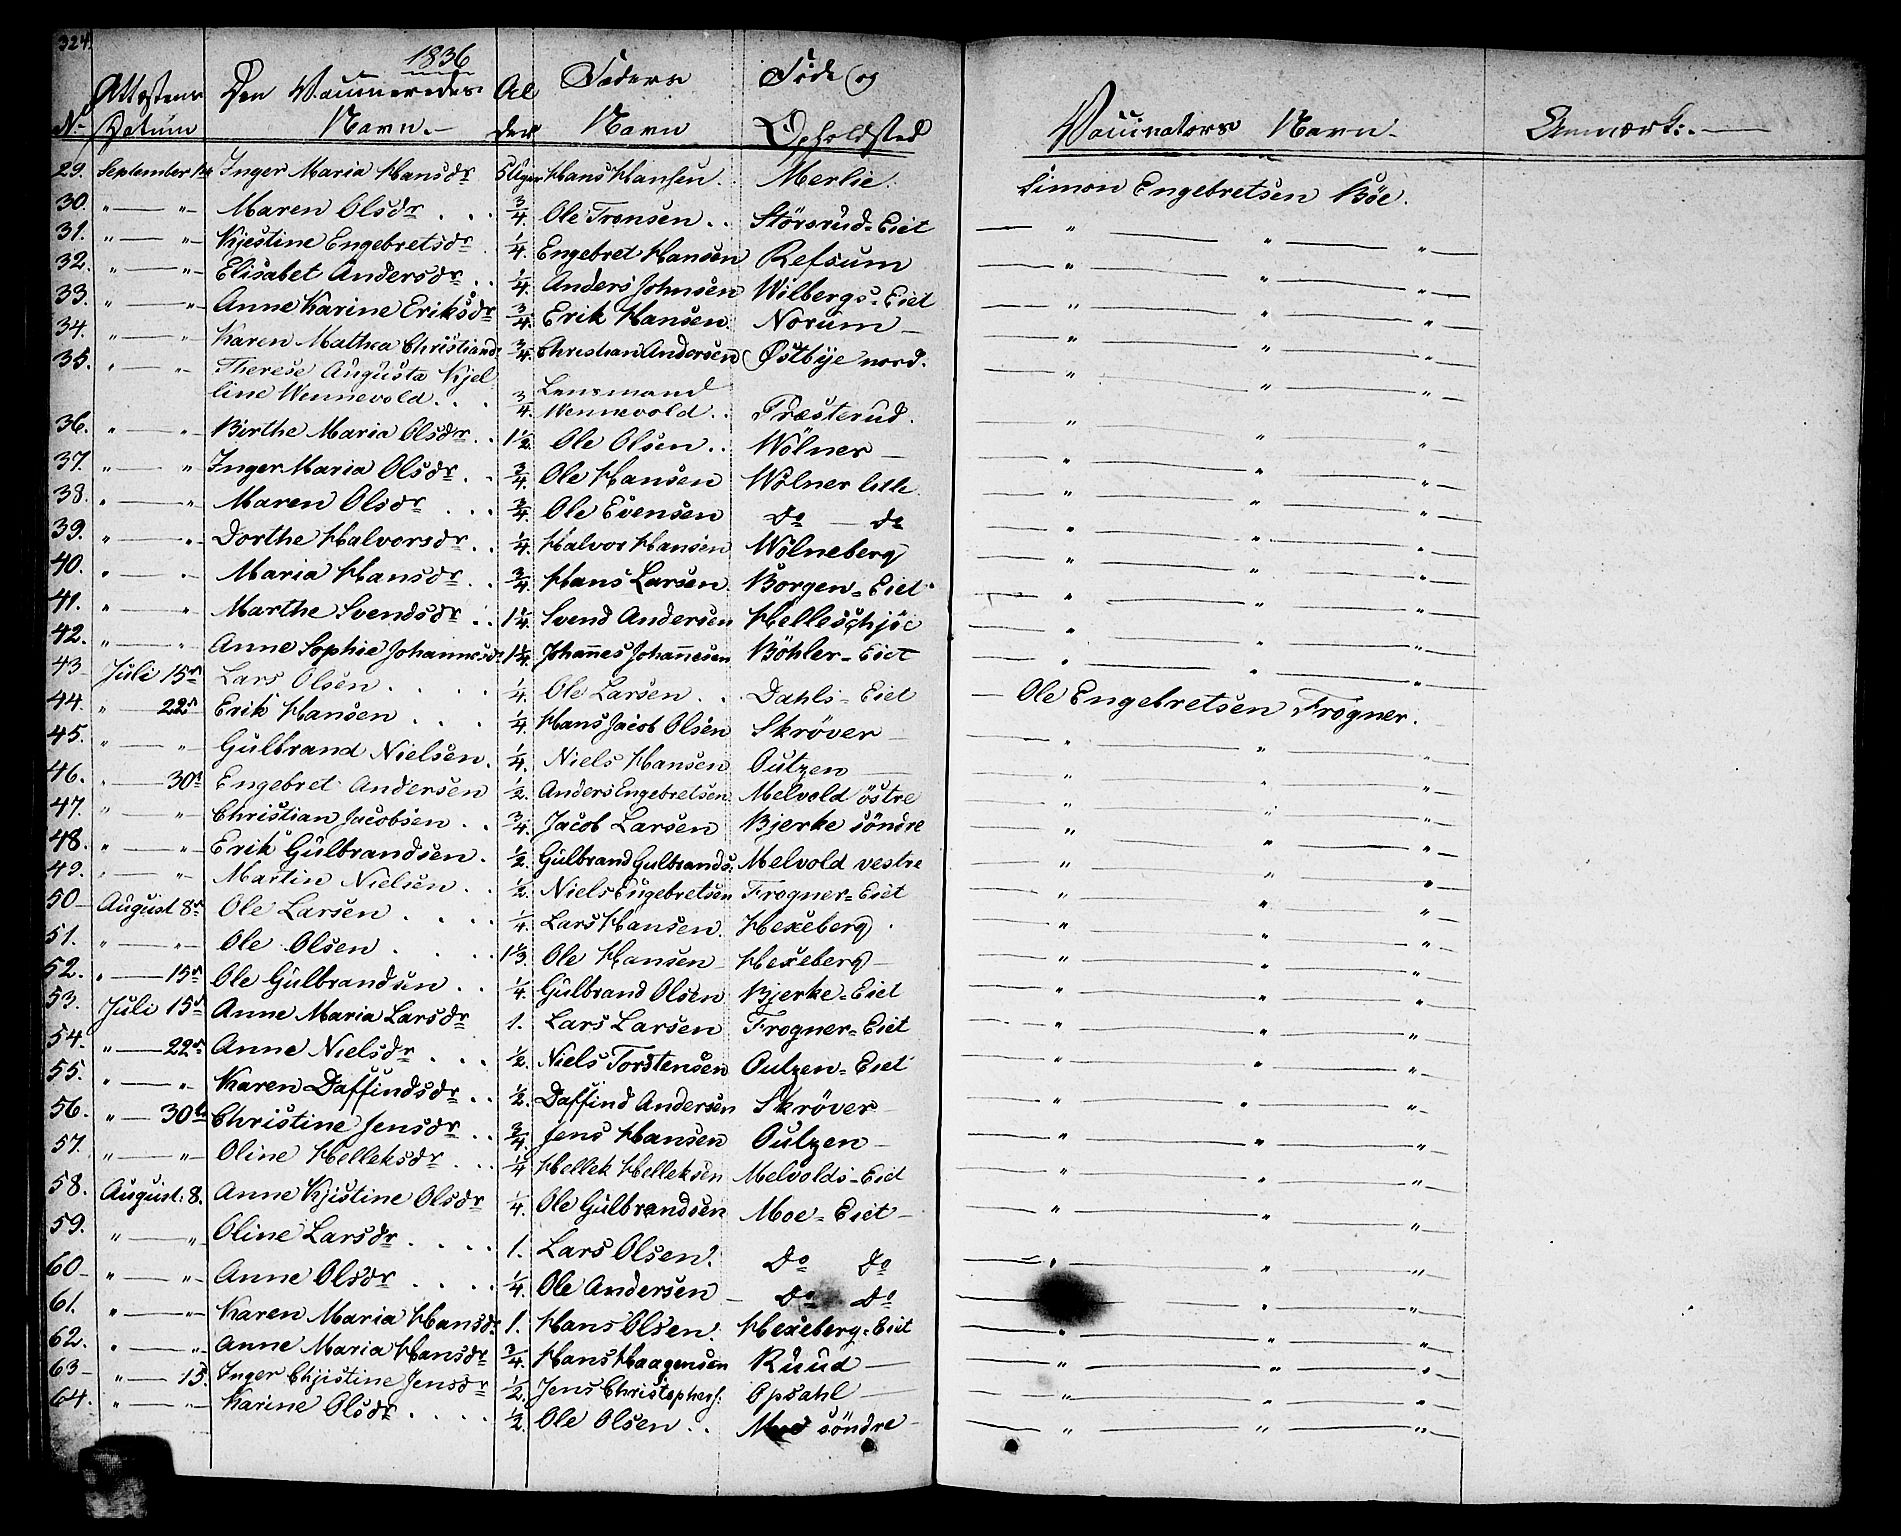 324.
1836
Attestens Den Vaccineredes Al Faders Føde og
No Datum Navn.- der Navn Opholdsted Vaccinators Navn. Anmærk:.-
29. September Inger Maria Hansdr Hans Hansen. Merlie. Simon Engebretsen Böe.
30. " — " Maren Olsdr . . . 3/4. Ole Tronsen . . Störsrud-Eiet — " — " — " —
31. " — " Kjestine Engebretsdr 1/4. Engebret Hansen Refsum — " — " — " —
32. " — " Elisabet Andersdr . . 1/4. Anders Johnsen Wilbergs-Eiet — " — " — " —
33. " — " Anne Karine Eriksdr 3/4. Erik Hansen. Norum — — " — " — " —
34. " — " Karen Mathea Christiand. 3/4. Christian Andersen Østbye nord. — " — " — " —
35. " — " Therese Augusta Kjel
line Wennevold . . . 3/4 Lensmand Wennevold . . Præsterud. — " — " — " —
36. " — " Birthe Maria Olsdr . . 1 1/2. Ole Olsen . . Wölner — — " — " — " —
37. " — " Inger Maria Olsdr . . 3/4. Ole Hansen Wölner lille. — " — " — " —
38. " — " Maren Olsdr . . . 3/4. Ole Evensen Do — do — " — " — " —
39. " — " Dorthe Halvorsdr . . 1/4. Halvor Hansen Wölneberg — " — " — " —
40. " — " Maria Hansdr . . 3/4. Hans Larsen. Borgen-Eiet — " — " — " —
41. " — " Marthe Svendsdr . . 1 1/4. Svend Andersen Helleschjöe — " — " — " —
42. " — " Anne Sophie Johannesdr 1 1/4. Johannes Johannesen Böhler-Eiet — " — " — " —
43. Juli 15de Lars Olsen . . . . 1/4. Ole Larsen . . Dahls-Eiet — Ole Engebretsen Frogner.
44. " — 22de Erik Hansen . . . 1/4. Hans Jacob Olsen Skröver — — " — " — " —
45. " — " Gulbrand Nielsen. 1/4. Niels Hansen Outzen — — " — " — " —
46. " — 30te Engebret Andersen 1/2. Anders Engebretsen Melvold östre — " — " — " —
47. " — " Christian Jacobsen . . 3/4. Jacob Larsen Bjerke söndre — " — " — " —
48. " — " Erik Gulbrandsen. 1/2. Gulbrand Gulbrands. Melvold vestre — " — " — " —
49. " — " Martin Nielsen . . 1/2. Niels Engebretsen Frogner-Eiet — " — " — " —
50. August 8de Ole Larsen . . . . 1/4. Lars Hansen. Hexeberg. — " — " — " —
51. " — " Ole Olsen . . . . 1 1/3. Ole Hansen Hexeberg — — " — " — " —
52. " — 15de Ole Gulbrandsen . . 1/4. Gulbrand Olsen Bjerke-Eiet — " — " — " —
53. Juli 15de Anne Maria Larsdr 1. Lars Larsen Frogner-Eiet — " — " — " —
54. " — 22de Anne Nielsdr . . . 1/2. Niels Torstensen Outzen-Eiet — " — " — " —
55. " — " Karen Daffindsdr . . 1/2. Daffind Andersen Skröver — — " — " — " —
56. " — 30te Christine Jensdr . . 3/4. Jens Hansen Outzen — — " — " — " —
57. " — " Oline Helleksdr . . . 1/4 Hellek Helleksen Melvolds-Eiet — " — " — " —
58. August. 8. Anne Kjistine Olsdr 1/4. Ole Gulbrandsen Moe-Eiet — — " — " — " —
59. " — " Oline Larsdr . . . . 1. Lars Olsen. Do Do — " — " — " —
60. " — " Anne Olsdr . . . . 1/4. Ole Andersen — Do Do — " — " — " —
61. " — " Karen Maria Hansdr 1. Hans Olsen. Hexeberg-Eiet — " — " — " —
62. " — " Anne Maria Hansdr 3/4. Hans Haagensen Ruud — — " — " — " —
63. " — 15. Inger Chjistine Jensdr 1/2. Jens Christophers. Opsahl — — " — " — " —
64. " — " Karine Olsdr . . . . 1/2. Ole Olsen . . Moe söndre — — " — " — " —